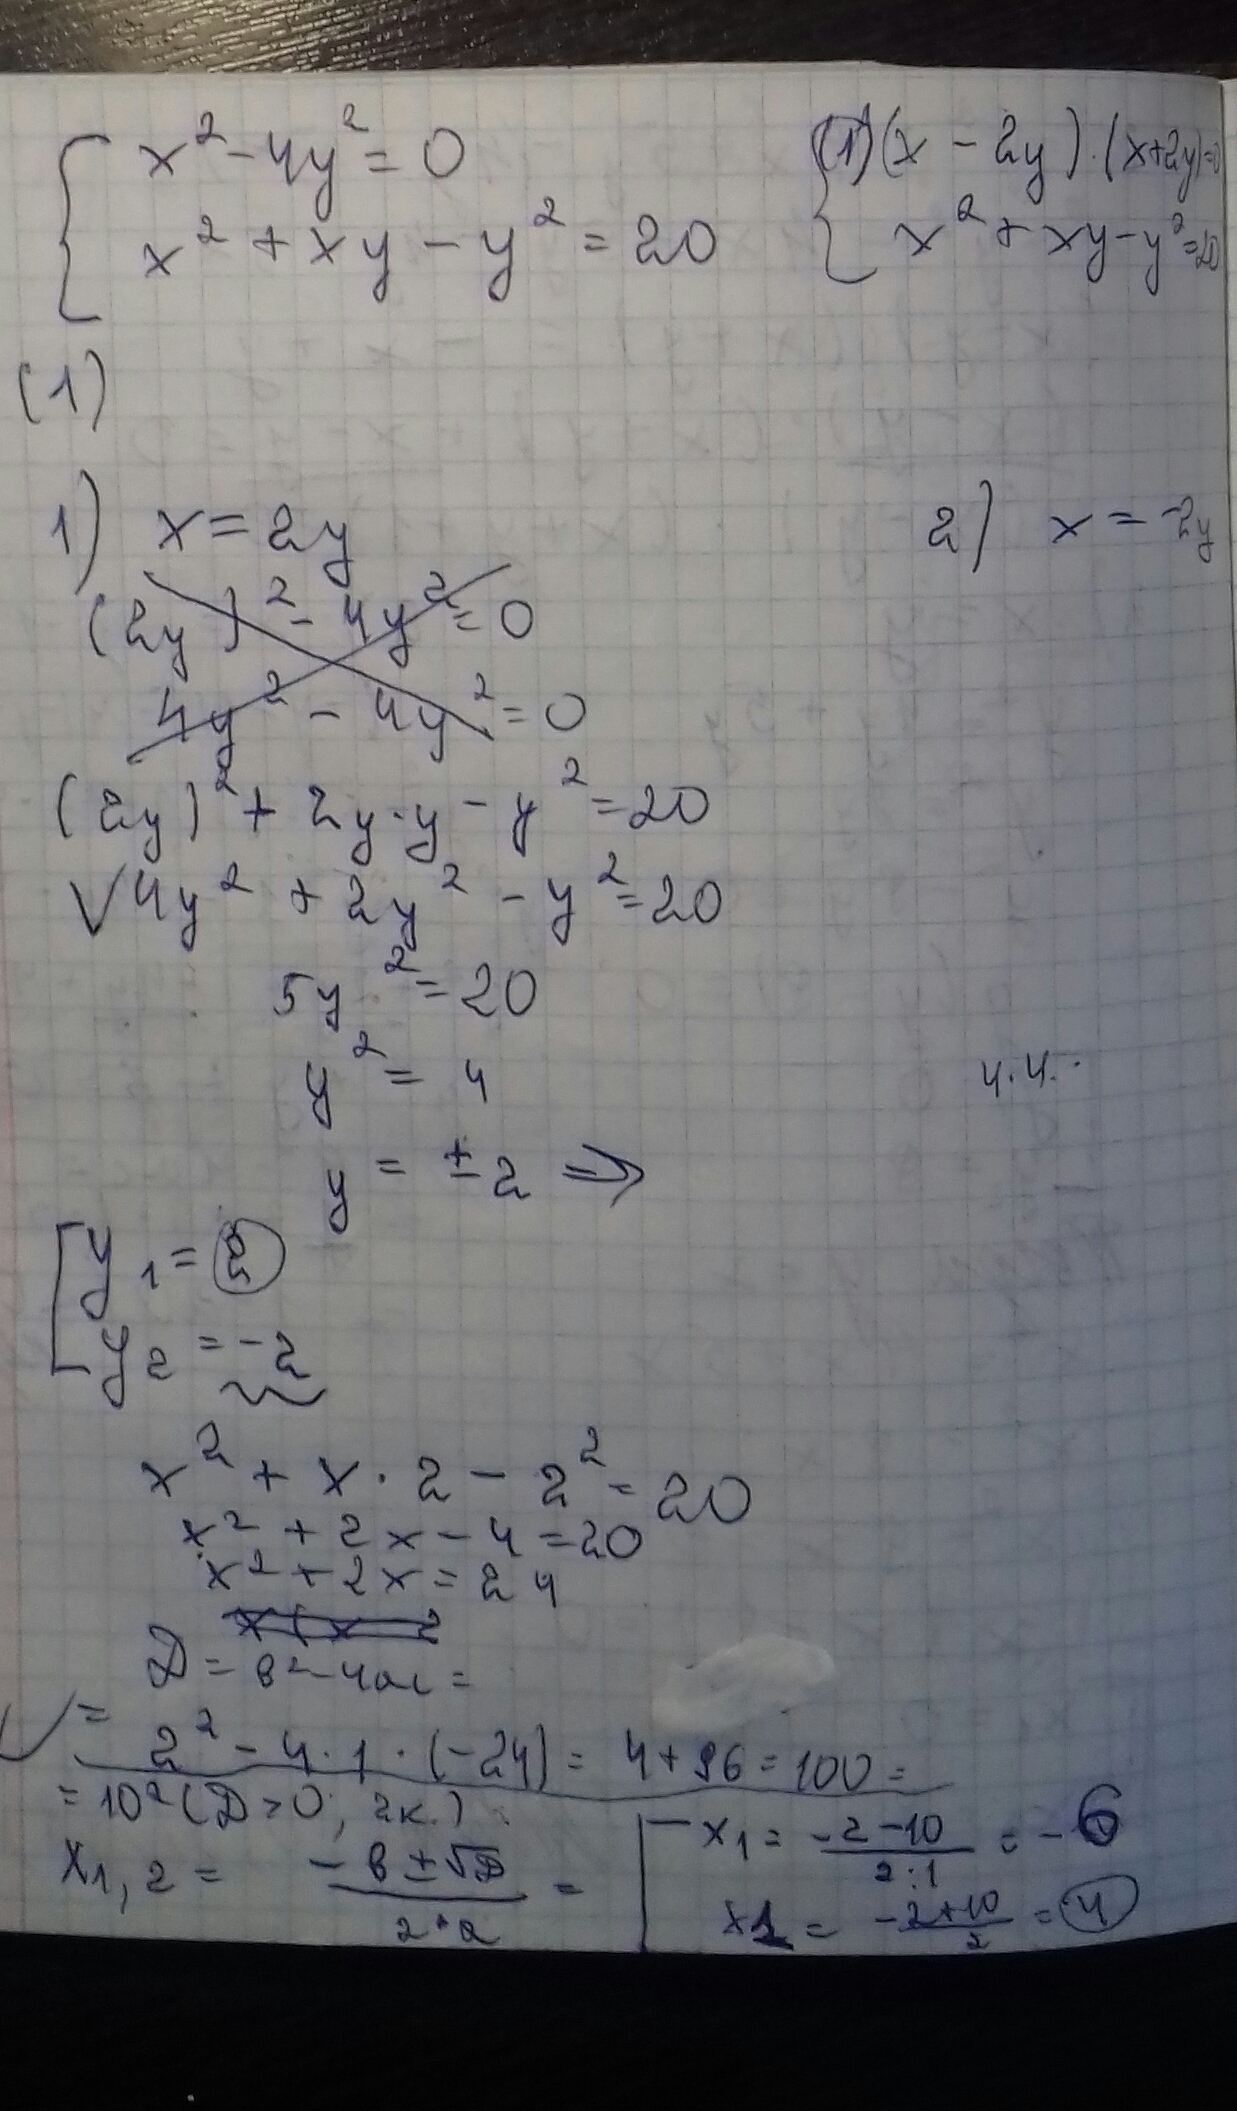 x² - 4y² = 0
x² + xy - y² = 20
(1) (x - 2y) · (x+2y)=0
x² + xy - y² = 20
(1)
1) x = 2y
2) x = -2y
(2y)² - 4y² = 0
4y² - 4y² = 0
(2y)² + 2y·y - y² = 20
√4y² + 2y² - y² = 20
5y² = 20
y² = 4
4·4·
y = ±2 ⇒
y₁ = 2
y₂ = -2
x² + x · 2 - 2² = 20
x² + 2x - 4 = 20
x² + 2x = 24
D = в² - 4ac =
= 2² - 4·1·(-24) = 4 + 96 = 100 =
= 10² (D>0, 2к.)
x₁,₂ = (-в ± √D)/(2·a) =
x₁ = (-2-10)/(2·1) = -6
x₂ = (-2+10)/2 = 4